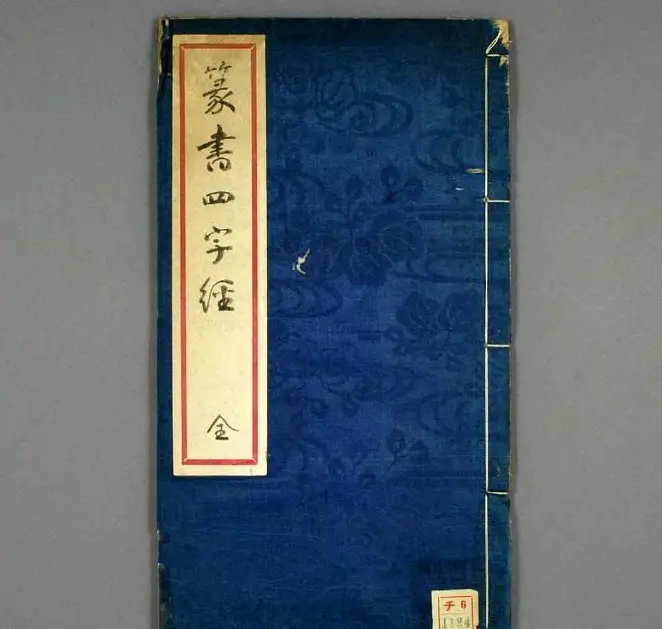 篆書四字經
全
チ6
1184